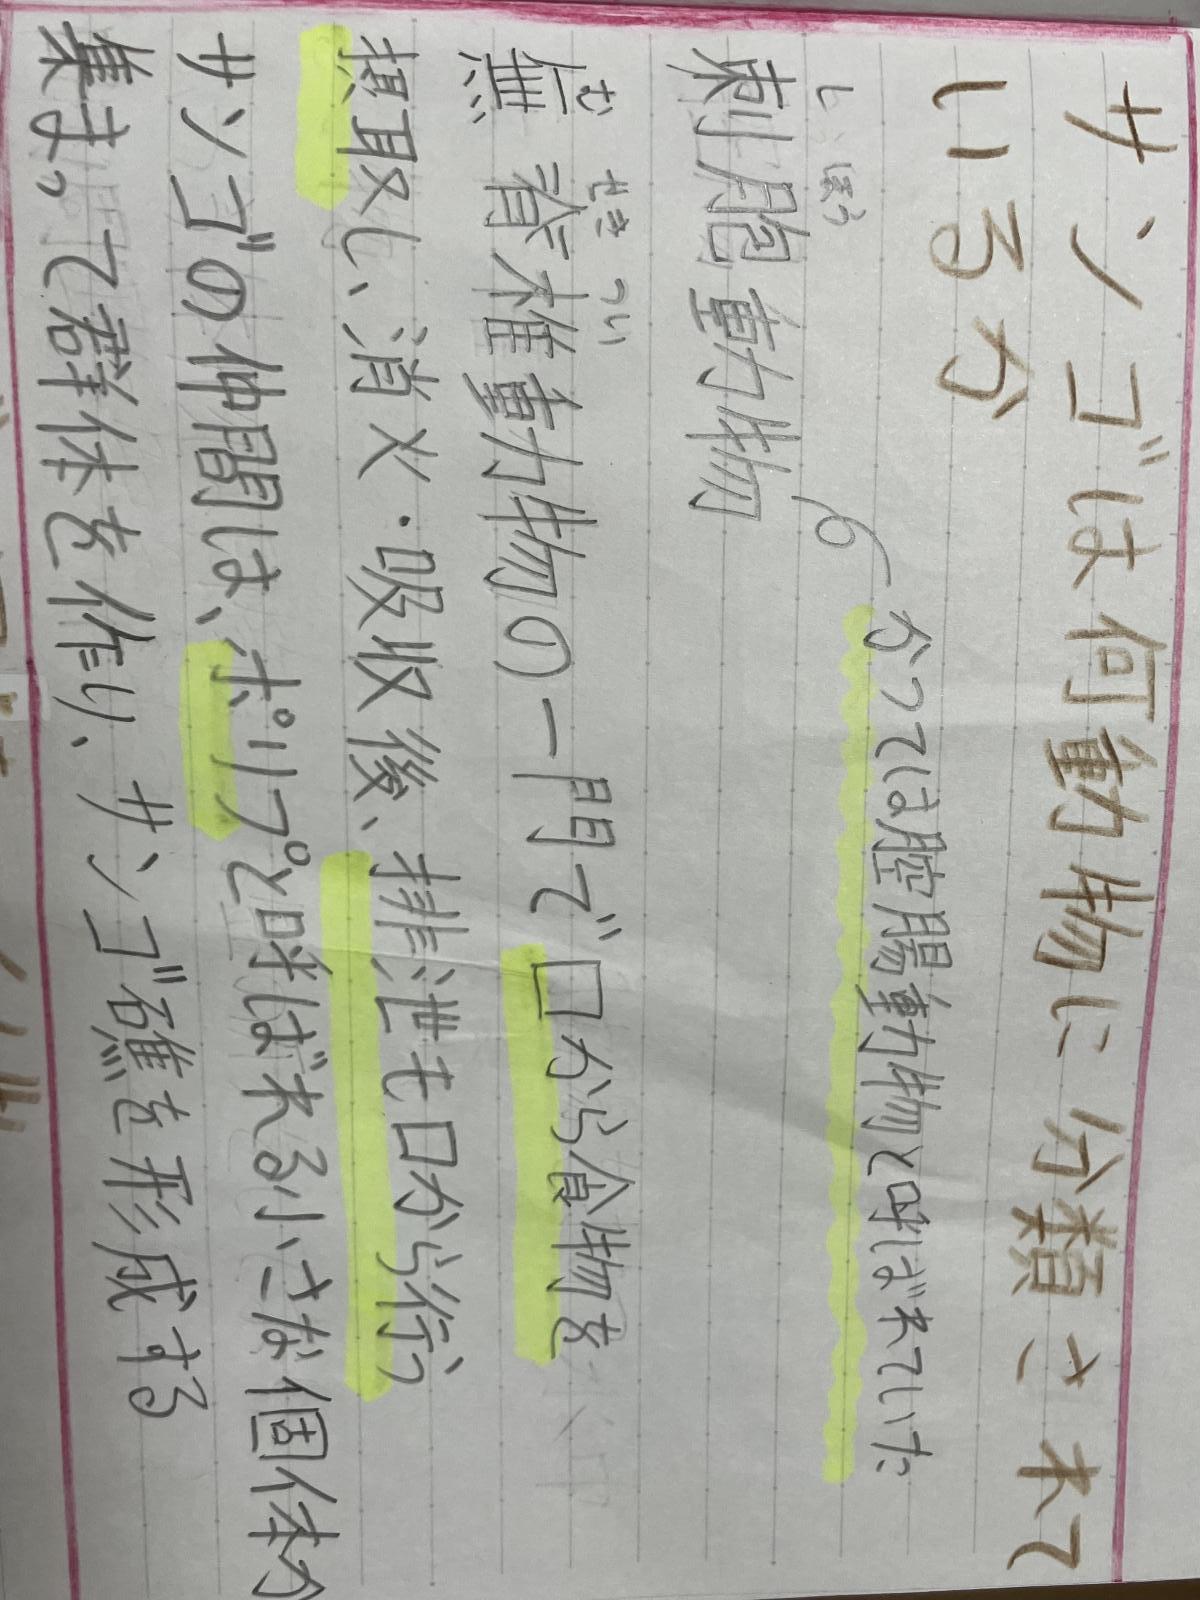 サンゴは何動物に分類されて
いるか
かつては腔腸動物と呼ばれていた
しほう
刺胞動物
む せき つい
無脊椎動物の一門で口から食物を
摂取し、消火・吸収後、排泄も口から行う
サンゴの仲間は、ポリプと呼ばれる小さな個体が
集まって群体を作り、サンゴ礁を形成する